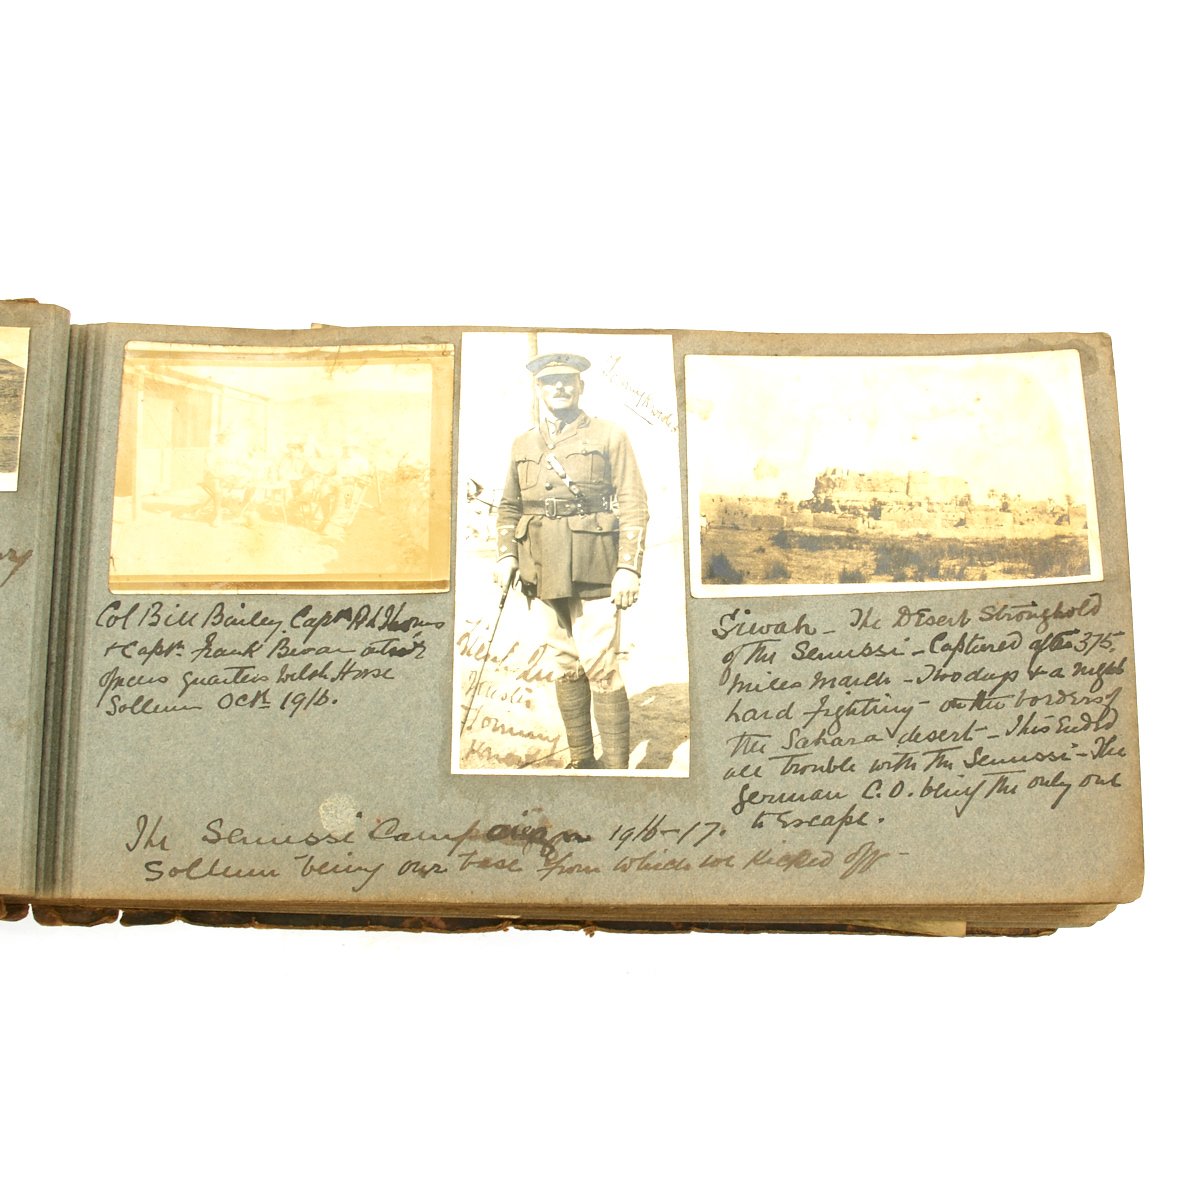 Col Bill Bailey Capt R L Thomas
+ Capt. Frank Bevan at their
officers quarters Welsh Horse
Sollum Oct. 1916.
Siwah – The Desert Stronghold
of the Senussi – Captured after 375.
miles march – Two days + a night
hard fighting – on the borders of
the Sahara desert – This Ended
all trouble with the Senussi – The
German C.O. being the only one
to Escape.
The Senussi Campaign 1916–17.
Sollum being our base from which we kicked off –